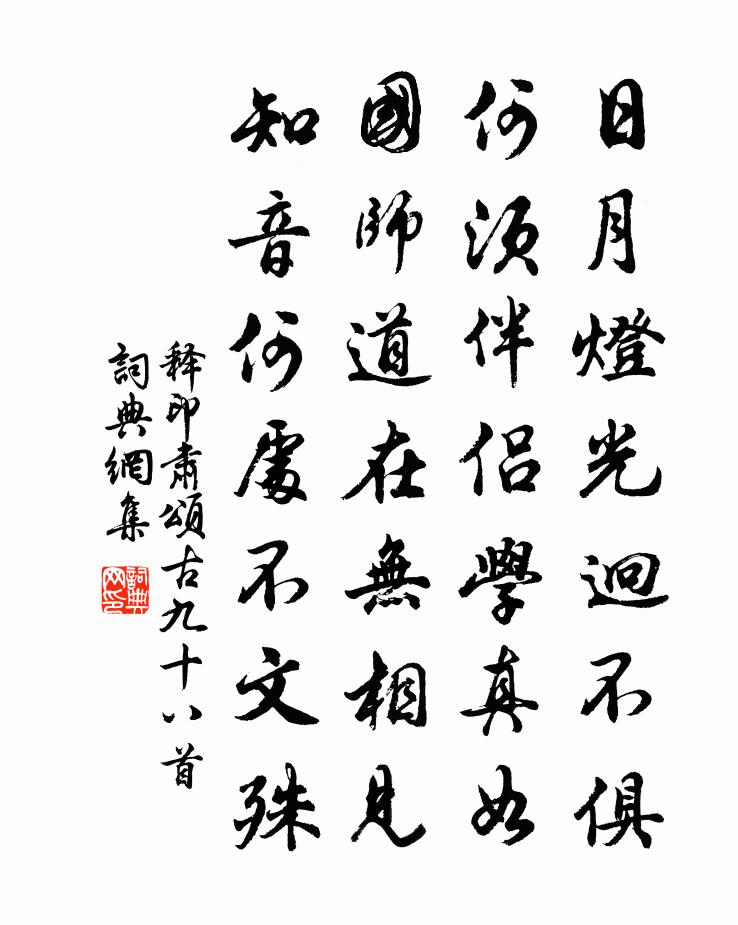 日月燈光迥不俱
何須伴侶學真如
國師道在無相見
知音何處不文殊
释印肅頌古九十八首
詞典網集
詞典網印